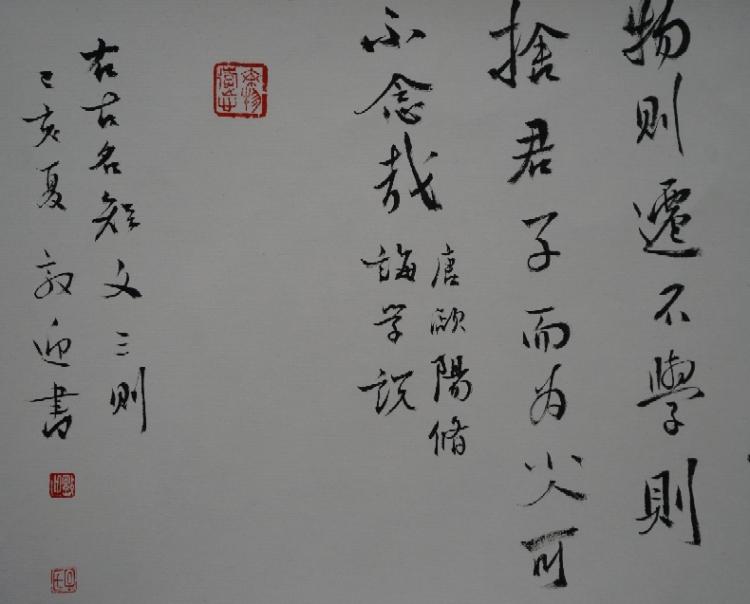 物则遷不學則
捨君子而为小人可
不念哉
唐歐陽脩
誨学説
右古名短文三则
己亥夏敦迎書